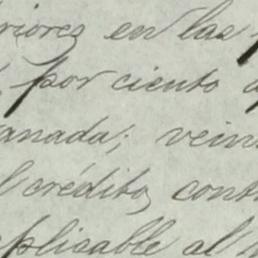 riores en las
por ciento
anada; vein
l crédito, cont
plicable al